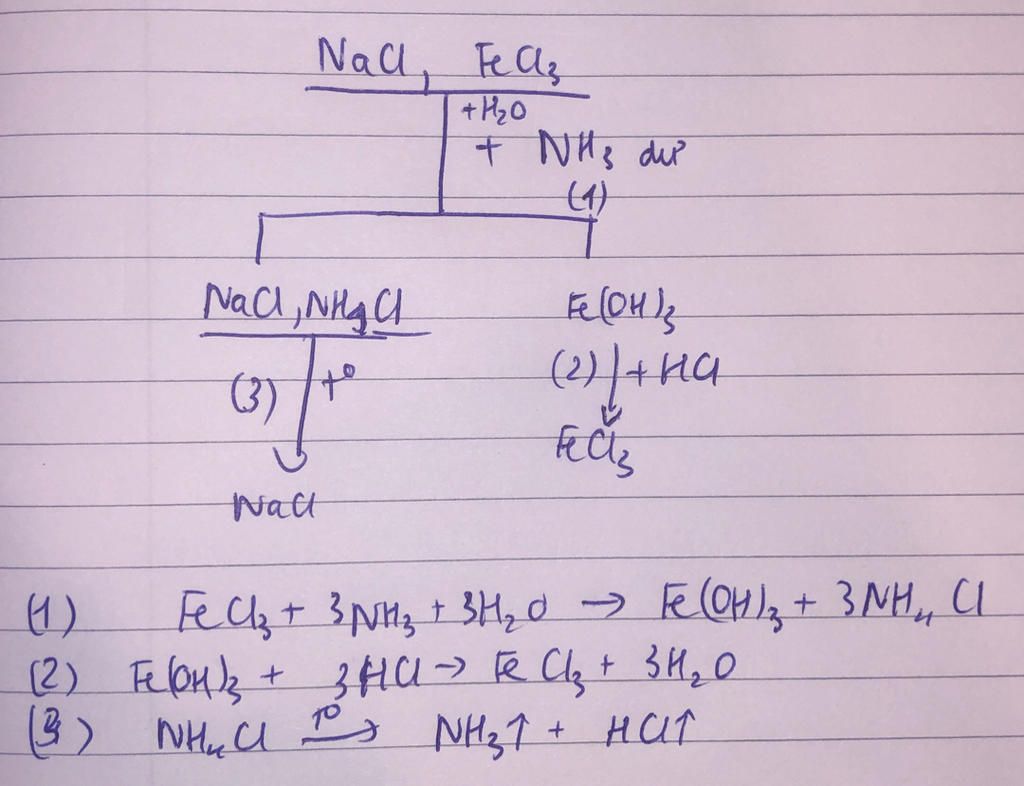 NaCl, FeCl₃
+H₂O
+ NH₃ dư
(1)
NaCl, NH₄Cl Fe(OH)₃
(3) t° (2) + HCl
FeCl₃
NaCl
(1) FeCl₃ + 3NH₃ + 3H₂O → Fe(OH)₃ + 3NH₄Cl
(2) Fe(OH)₃ + 3HCl → FeCl₃ + 3H₂O
(3) NH₄Cl t° → NH₃↑ + HCl↑